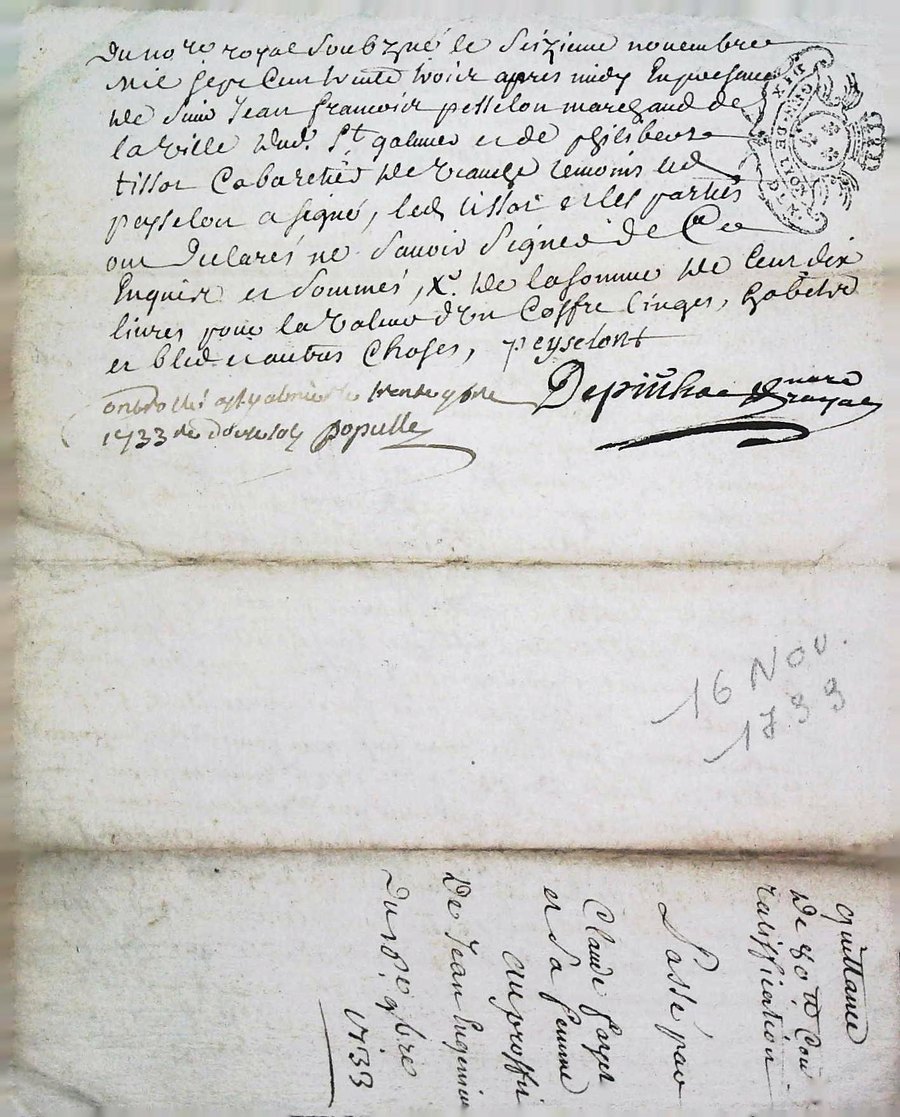 Du no.re royal soubzné le seizieme novembre
mil sept cent trente trois apres midy En presence
de sieur Jean francois pesselon marchand de
la ville dud. St galmier et de philibert
tissot Cabaretier de temoins led
peyselon a signé, led tissot et les parties
ont Declarés ne savoir signer de Ce
Enquis et sommés, X. de la somme de Cent dix
livres pour la valeur d'un Coffre linges, habits
et bled et autres Choses, peyselont
DIX DEN.
G.N. DE LYON
Depinhac nore
royal
controllé a St galmier le trente 9bre
1733 populle
16 Nov.
1733
quittance
De 80 tt
ratiffication
Passé par
Claude
et sa femme
au proffit
De Jean
Du 9bre
1733